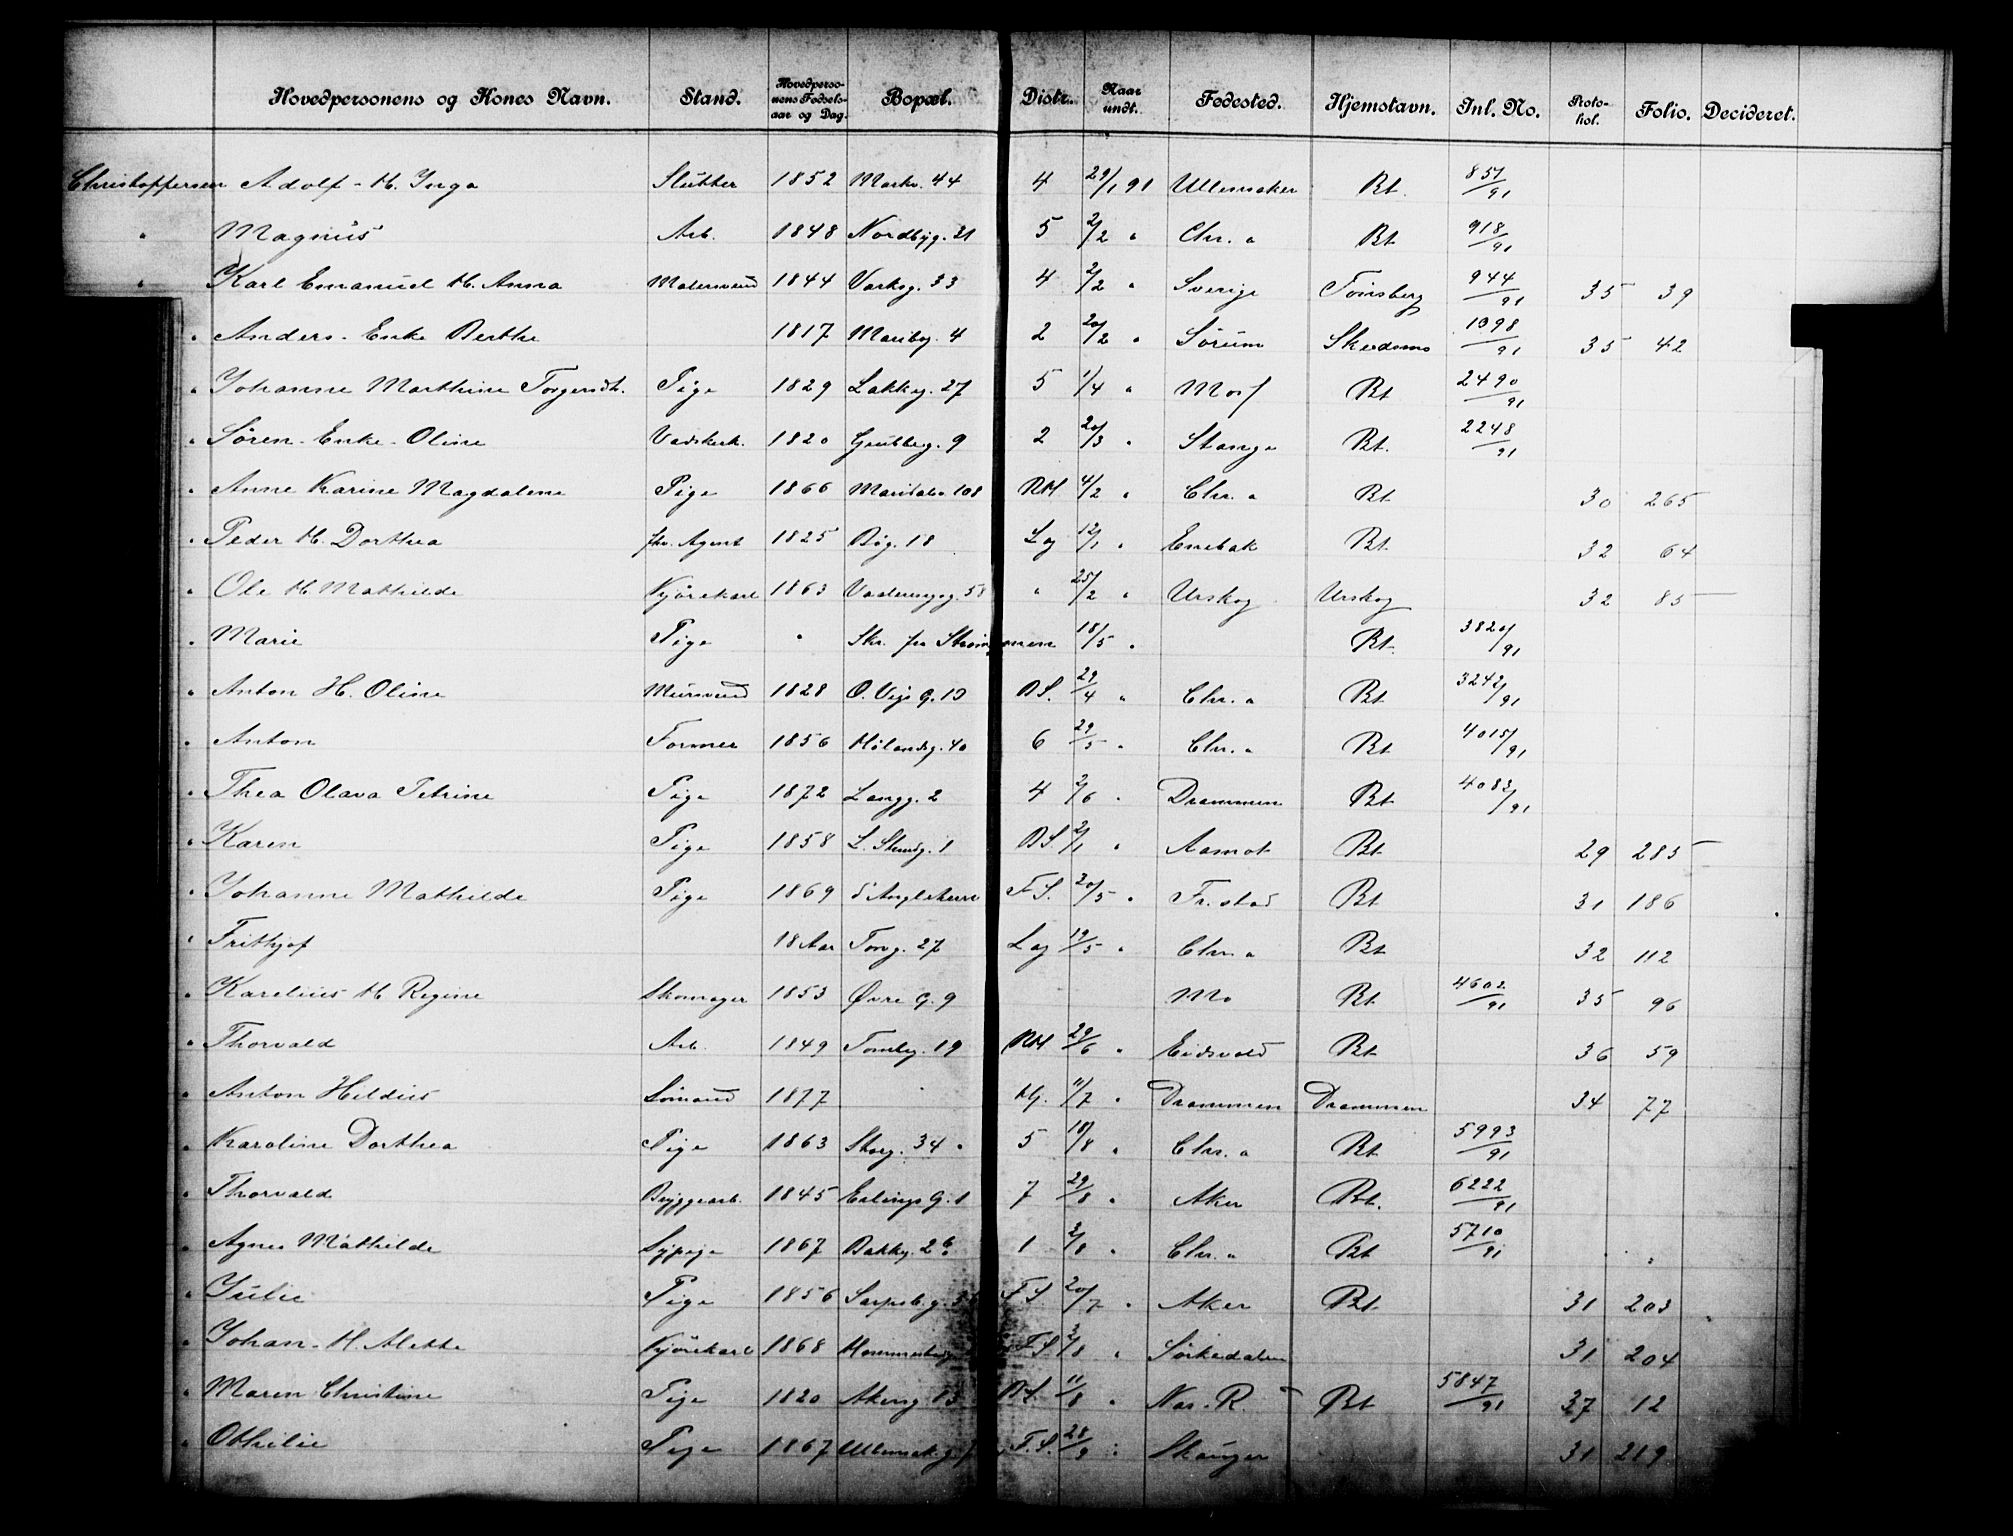 Hovedpersonens og Kones Navn. Stand. Hovedperso-nens Fødsels-aar og Dag. Bopæl. Distr. Naar undt. Fødested. Hjemstavn. Inl. No. Proto-kol. Folio. Decideret.
Christoffersen Adolf - H. Inga Slubber 1852 Markv. 44 4 29/1 91 Ullensaker Bt. 851/91
" Magnus Arb. 1848 Nordbyg. 31 5 2/2 " Chr.a Bt 918/91
" Karl Emanuel H. Anna Malersvend 1844 4 2/2 " Sverige Tønsberg 944/91 35 39
" Anders - Enke Berthe 1817 Maribog. 4 2 20/2 " Sørum Skedsmo 1098/91 35 42
" Johanne Marthine Torgersdt. Pige 1829 Lakkeg. 27 5 1/4 " Moss Bt 2490/91
" Søren - Enke - Oline Vadskerk. 1820 Grubbeg. 9 2 20/3 " Stange Bt. 2248/91
" Anne Karine Magdalene Pige 1866 Maridalsv 108 RH 4/2 " Chr.a Bt 30 265
" Peder H. Dorthea fhv. Agent 1825 Bøg. 18 Lag 12/1 " Enebak Bt 32 64
" Ole H Mathilde Kjørekarl 1863 " 25/2 " Urskog Urskog 32 85
" Marie Pige " Skr. fra Strømmen 18/5 " Bt. 3820/91
" Anton H. Oline Mursvend 1828 BS. 29/4 " Chr.a Bt 3242/91
" Anton Former 1856 Hølandsg. 40 6 29/5 " Chr.a Bt 4015/91
" Thea Olava Petrine Pige 1872 Langg. 2 4 2/6 " Drammen Bt 4083/91
" Karen Pige 1858 L. Strandg. 1 BS. 2/1 " Aamot Bt 29 285
" Johanne Mathilde Pige 1869 F.S. 20/5 " Fr.stad Bt 31 186
" Frithjof 18 Aar Torvg. 27 Lag 19/5 " Chr.a Bt 32 112
" Karelius H Regine Skomager 1853 Øvre G. 9 Mo Bt 4602/91 35 96
" Thorvald Arb. 1849 Tomteg. 19 RH 29/6 " Eidsvold Bt 36 59
" Anton Heldius Sømand 1877 Hj. 11/7 " Drammen Drammen 34 77
" Karoline Dorthea Pige 1863 Storg. 34 5 18/8 " Chr.a Bt 5993/91
" Thorvald Bryggearb. 1845 Erlings G. 1 7 29/8 " Aker Bt. 6222/91
" Agnes Mathilde Sypige 1867 Bakkeg. 26 1 2/8 " Chr.a Bt 5710/91
" Julie Pige 1856 Sarpsb.g. F S. 20/7 " Aker Bt. 31 203
" Johan - H. Alette Kjørekarl 1868 F.S. 3/8 " Sørkedalen 31 204
" Maren Christine Pige 1820 Akersg. B.S. 11/8 " Nas. R. Bt 5847/91 37 12
" Othilie Pige 1867 Ullensak.g. F.S. 28/9 " Skauger 31 219